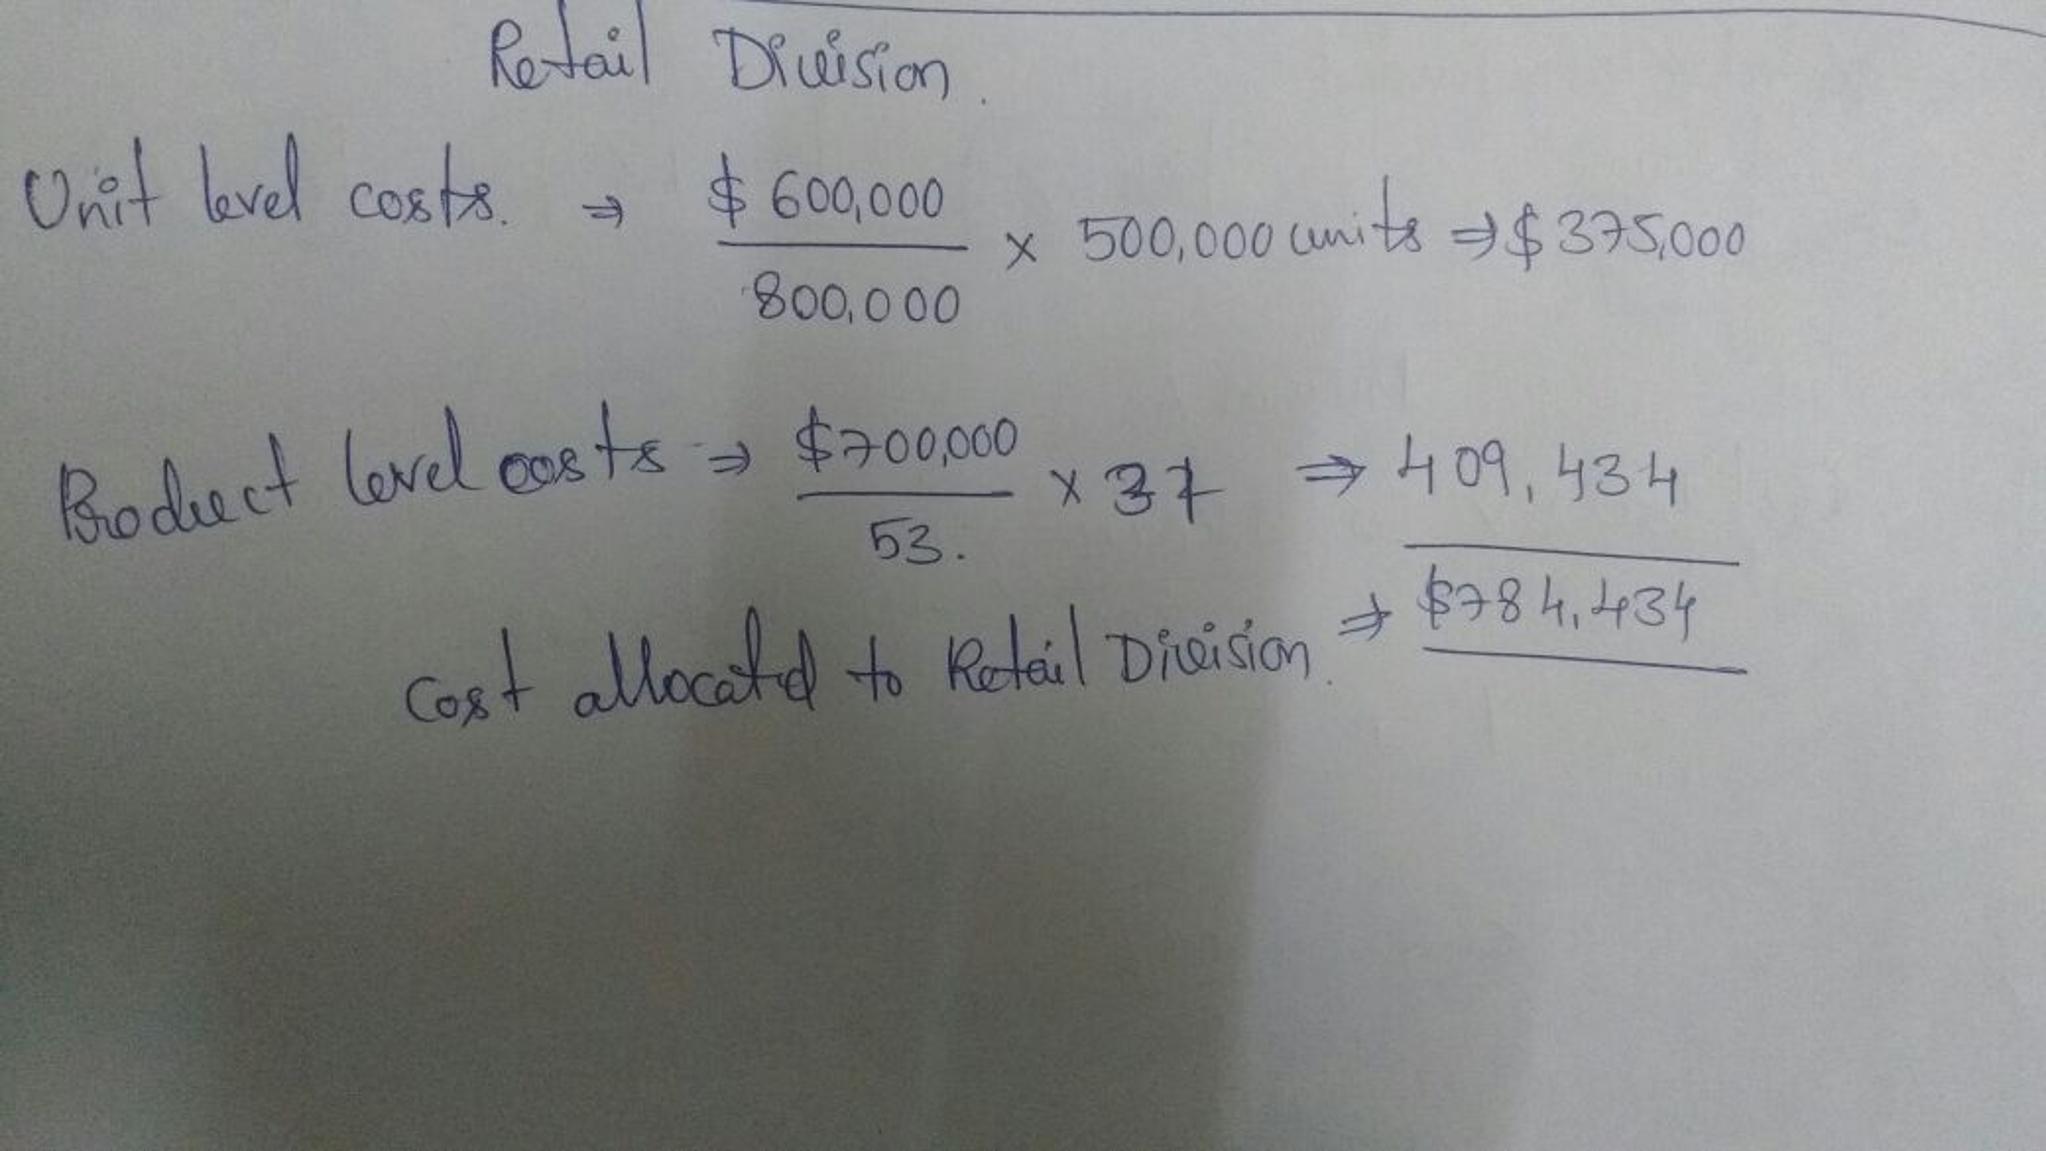 Retail Division.
Unit level costs. ⇒ $ 600,000 / 800,000 × 500,000 units ⇒ $ 375,000
Product level costs ⇒ $700,000 / 53. × 37 ⇒ 409,434
Cost allocated to Retail Division. ⇒ $784,434